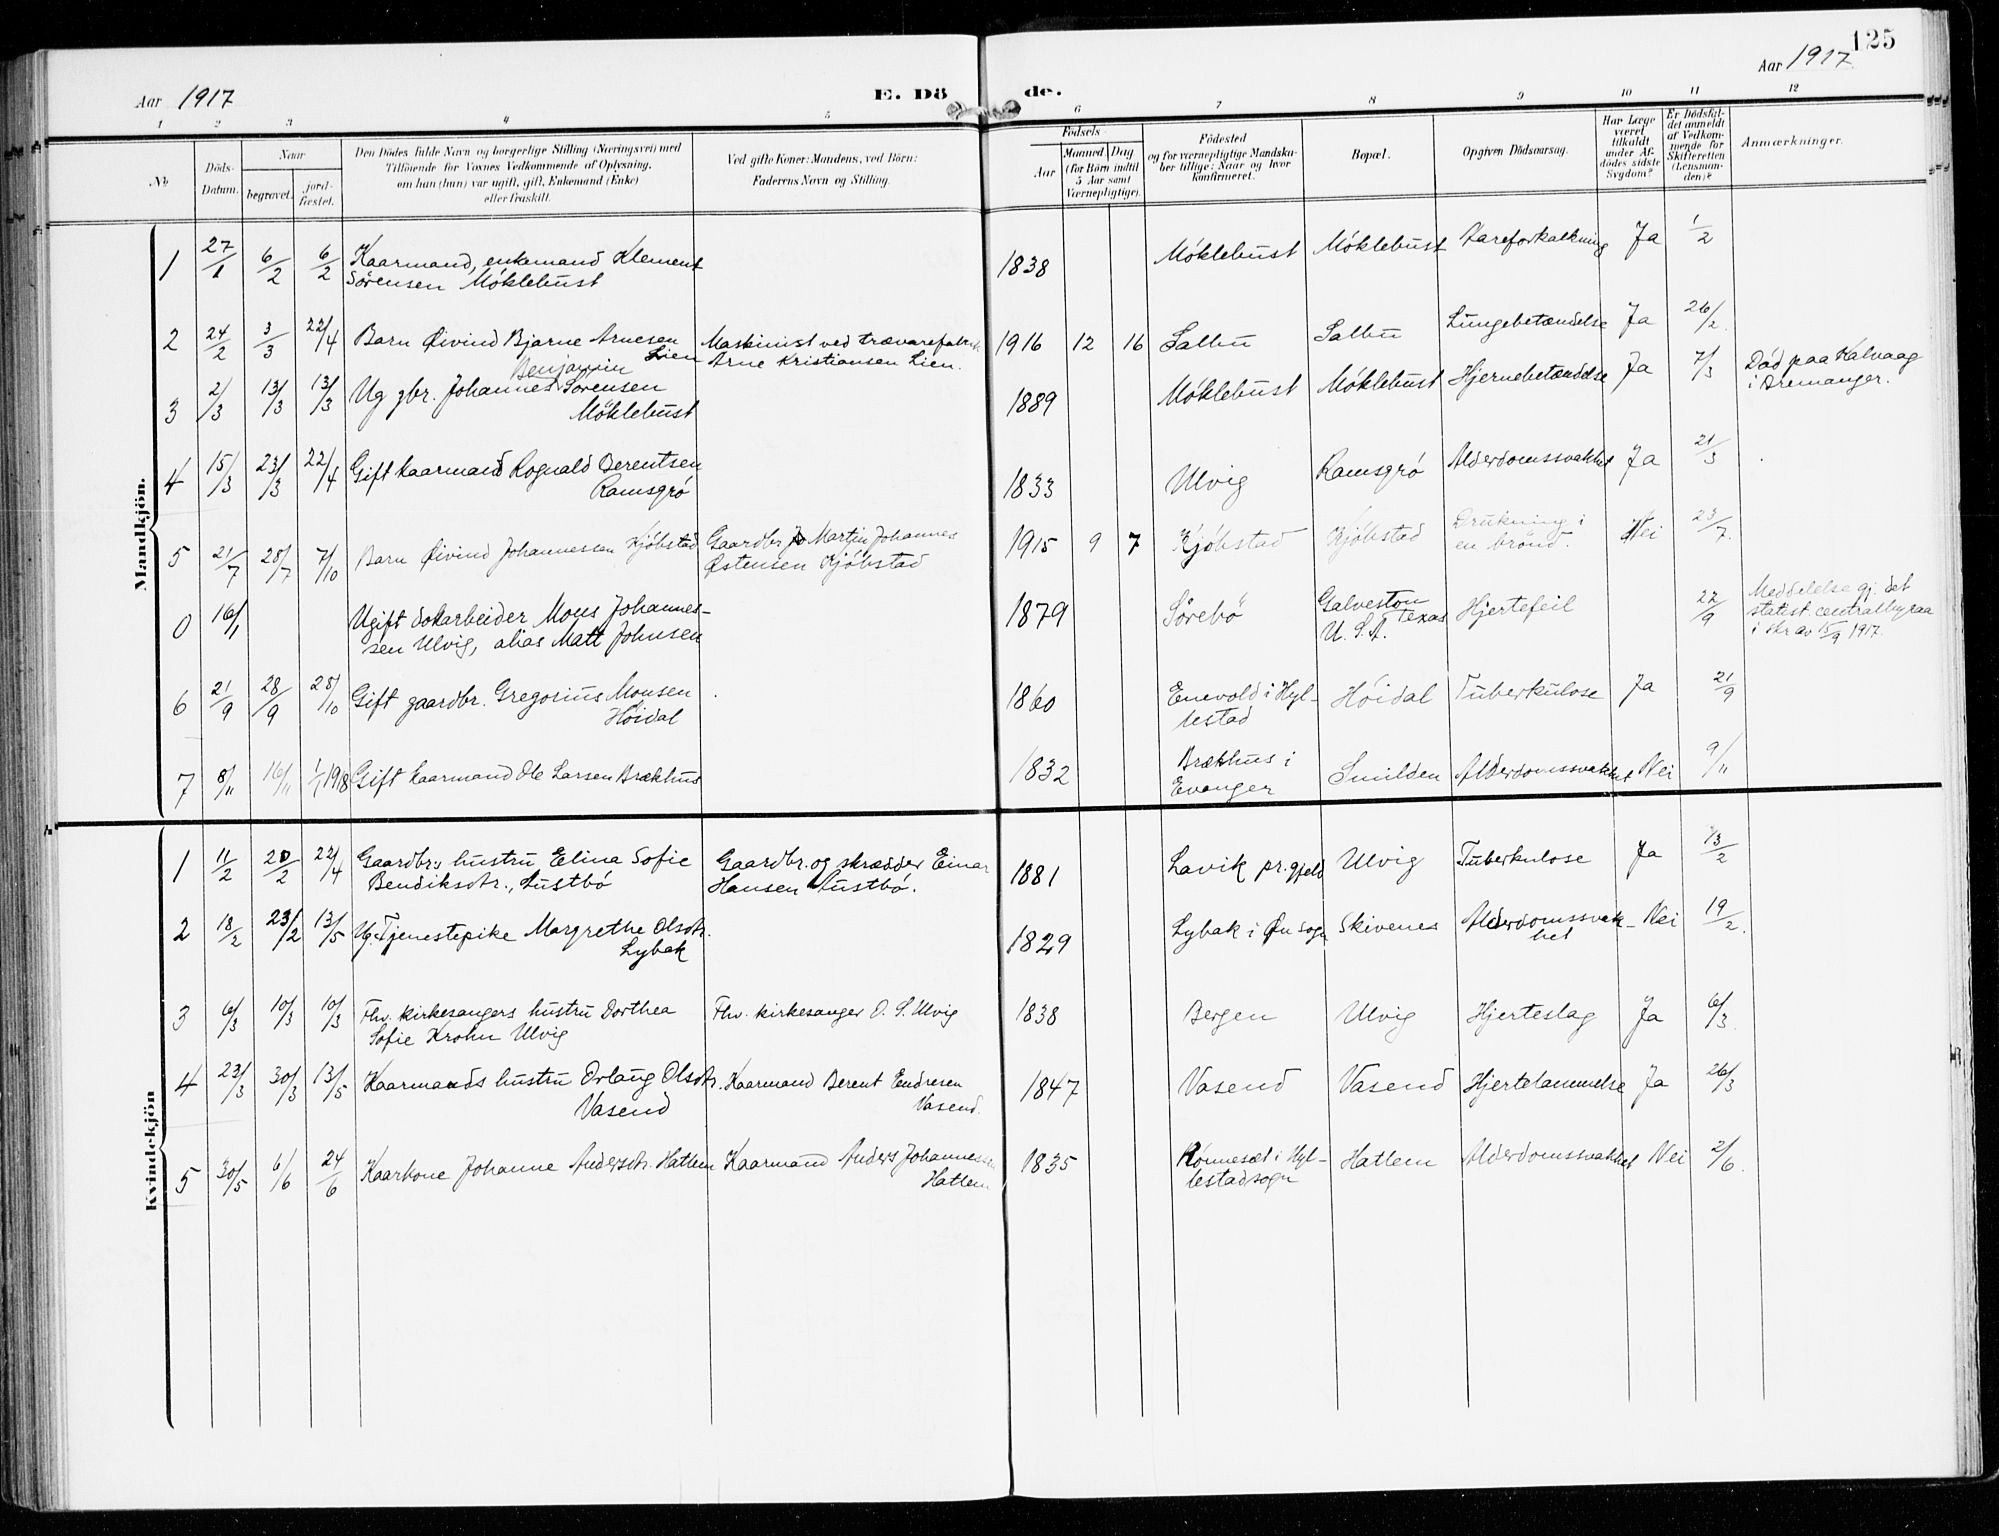 125
Aar 1917
E. Dö de.
Aar 1917.
1 2 3 4 5 6 7 8 9 10 11 12
No
Döds-
Datum.
Naar
begravet.
jord-
fæstet.
Den Dödes fulde Navn og borgerlige Stilling (Næringsvei) med
Tilföiende for Voxnes Vedkommende af Oplysning,
om han (hun) var ugift, gift, Enkemand (Enke)
eller fraskilt.
Ved gifte Koner: Mandens, ved Börn:
Faderens Navn og Stilling.
Födsels-
Aar
Maaned Dag
(for Börn indtil
5 Aar samt
Værnepligtige).
Födested
og for værnepligtige Mandska-
ber tillige: Naar og hvor
konfirmeret.
Bopæl.
Opgiven Dödsaarsag.
Har Læge
været
tilkaldt
under Af-
dödes sidste
Sygdom?
Er Dödsfal-
det anmeldt
af Vedkom-
mende for
Skifteretten
(Lensman-
den)?
Anmærkninger.
Mandkjön.
1 27/1 6/2 6/2 Kaarmand, enkemand Klement
Sørensen Møklebust
1838 Møklebust Møklebust Aareforkalkning Ja 1/2
2 24/2 3/3 22/4 Barn Øivind Bjarne Arnesen
Lien
Maskinist ved trævarefabrik
Arne Kristiansen Lien.
1916 12 16 Salbu Salbu Lungebetændelse Ja 26/2
3 2/3 13/3 13/3 Benjamin
Ug gbr. Johannes Sørensen
Møklebust
1889 Møklebust Møklebust Hjernebetændelse Ja 7/3 Død paa Kalvaag
i Bremanger.
4 15/3 23/3 22/4 Gift kaarmand Rognald Berentsen
Ramsgrø
1833 Ulvig Ramsgrø Alderdomssvakhet Ja 21/3
5 21/7 28/7 7/10 Barn Øivind Johannessen Kjøbstad
Gaardbr. Martin Johannes
Østensen Kjøbstad
1915 9 7 Kjøbstad Kjøbstad Drukning i
en brønd. Nei 23/7.
0 16/1 Ugift dokarbeider Mons Johannes-
sen Ulvig, alias Matt Johnsen
1879 Sørebø Galveston
Texas
U. S. A. Hjertefeil 22/9 Meddelelse gj. det
statist. centralbyraa
i skr av 15/9 1917.
6 21/9 28/9 28/10 Gift gaardbr. Gregorius Monsen
Høidal
1860 Enevold i Hyl-
lestad Høidal Tuberkulose Ja 21/9
7 8/11 16/11 1/1 1918 Gift kaarmand Ole Larsen Brækhus
1832 Brækhus i
Evanger Smilden Alderdomssvakhet Nei 9/11
Kvindekjön
1 11/2 20/2 22/4 Gaardbr.s hustru Elina Sofie
Bendiksdtr., Lustbø
Gaardbr. og skrædder Einar
Hansen Lustbø.
1881 Lavik pr.gjeld Ulvig Tuberkulose Ja 13/2
2 18/2 23/2 13/5 Ug. Tjenestepike Margrethe Olsdtr.
Lybak
1829 Lybak i Øn sogn Skivenes Alderdomssvak-
het Nei 19/2.
3 6/3 10/3 10/3 Fhv. kirkesangers hustru Dorthea
Sofie Krohn Ulvig
Fhv. kirkesanger O. S. Ulvig
1838 Bergen Ulvig Hjerteslag Ja 6/3.
4 23/3 30/3 13/5 Kaarmands hustru Orlaug Olsdtr.
Vasend
Kaarmand Berent Endresen
Vasend.
1847 Vasend Vasend Hjertelammelse Ja 26/3
5 30/5 6/6 24/6 Kaarkone Johanne Andersdtr. Hatlem
Kaarmand Anders Johannessen
Hatlem
1835 Rønneset i Hyl-
lestad sogn Hatlem Alderdomssvakhet Nei 2/6.